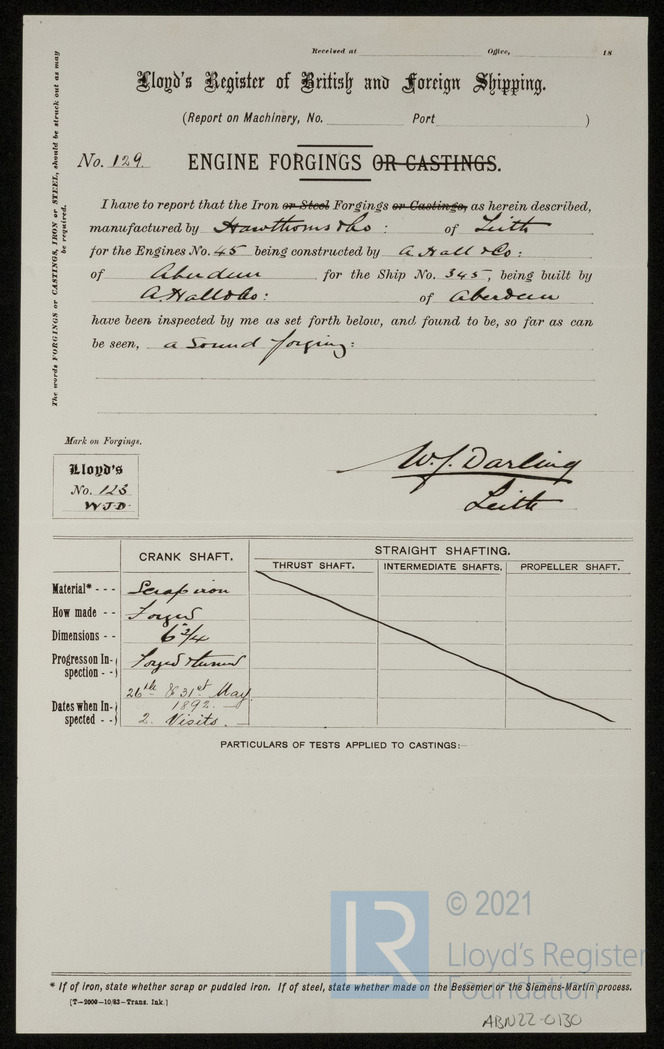 Received at Office, 18
Lloyd's Register of British and Foreign Shipping.
(Report on Machinery, No. Port )
No. 129. ENGINE FORGINGS OR CASTINGS.
The words FORGINGS or CASTINGS, IRON or STEEL, should be struck out as may
be required.
I have to report that the Iron or Steel Forgings or Castings, as herein described,
manufactured by Hawthorns & Co : of Leith
for the Engines No. 45 being constructed by A Hall & Co :
of Aberdeen for the Ship No. 345, being built by
A Hall & Co : of Aberdeen
have been inspected by me as set forth below, and found to be, so far as can
be seen, a Sound forging :
Mark on Forgings.
Lloyd's
No. 123
W.J.D.
W. J. Darling
Leith
CRANK SHAFT. STRAIGHT SHAFTING.
THRUST SHAFT. INTERMEDIATE SHAFTS. PROPELLER SHAFT.
Material* - - - Scrap iron
How made - - Forged
Dimensions - - 6 3/4"
Progress on In-
spection - - Forged & turned
Dates when In-
spected - - 26th & 31st May
1892. —
2. Visits. —
PARTICULARS OF TESTS APPLIED TO CASTINGS:—
© 2021
LR
Lloyd's Register
Foundation
* If of iron, state whether scrap or puddled iron. If of steel, state whether made on the Bessemer or the Siemens-Martin process.
[T—2000—10/83—Trans. Ink.]
ABN22-0130